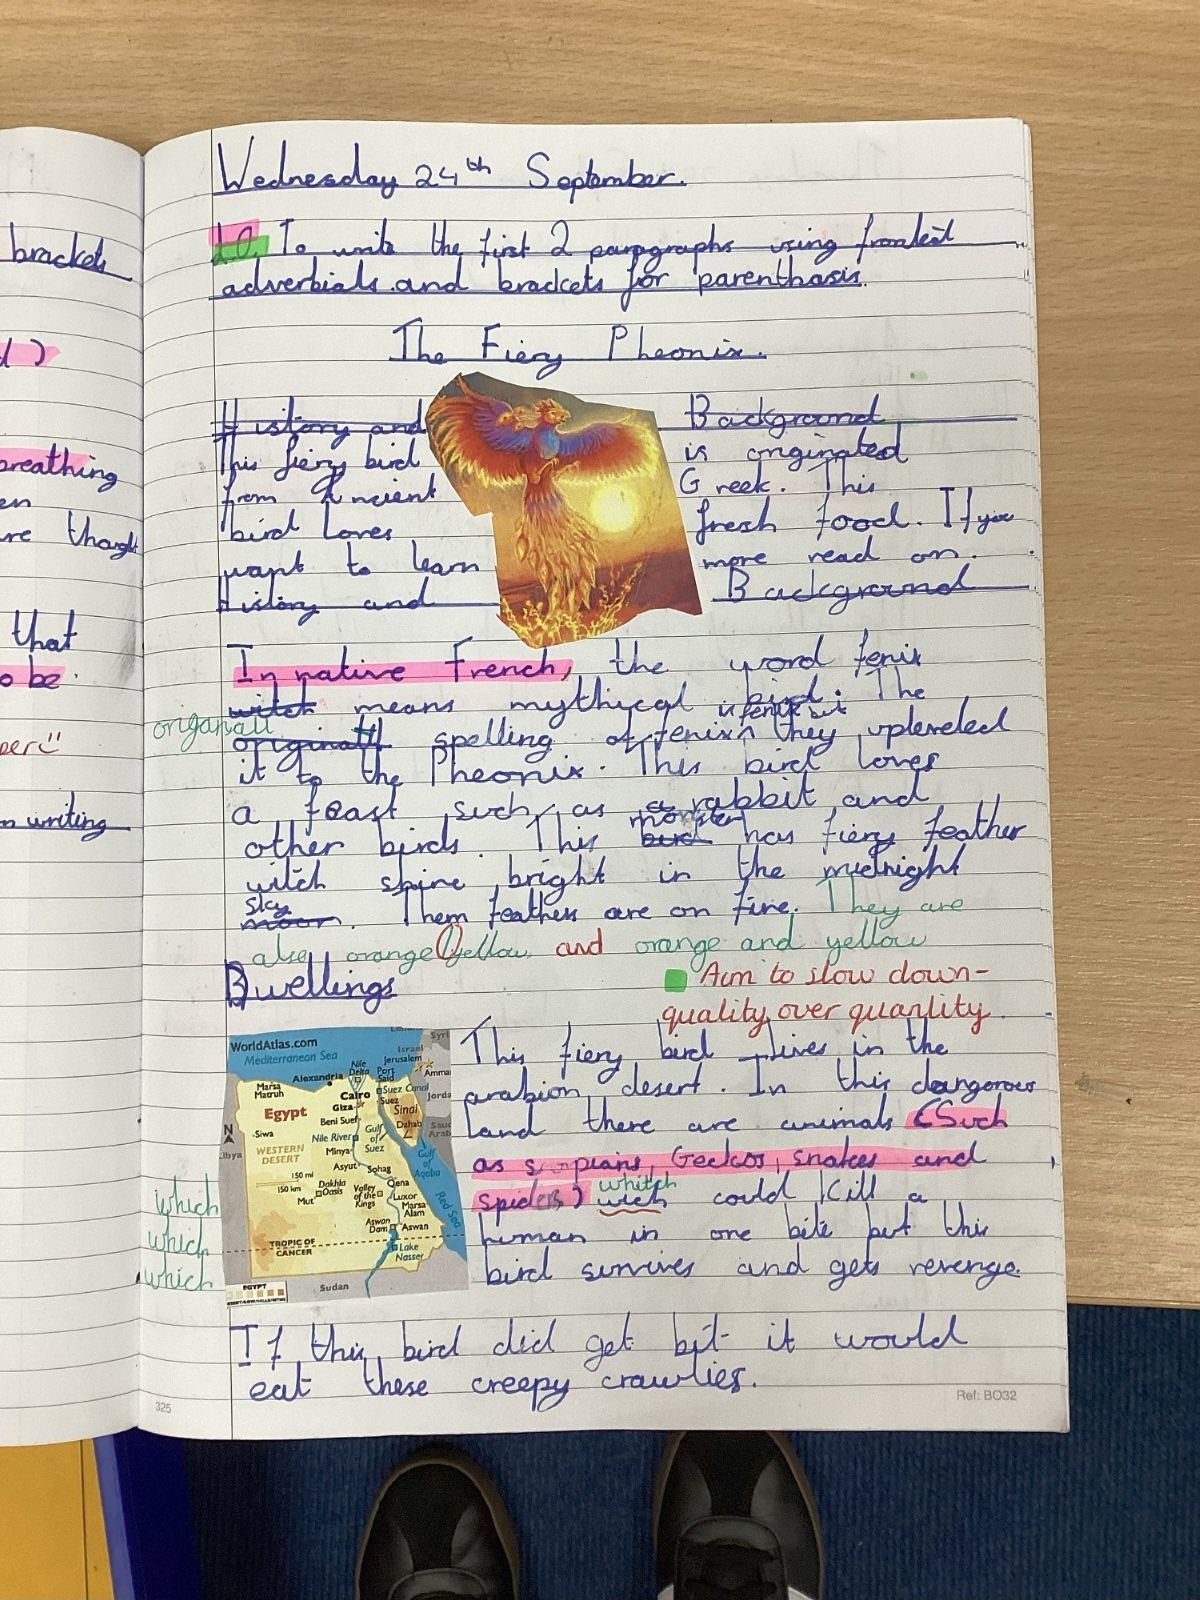 Wednesday 24th September.
LO. To write the first 2 paragraphs using fronted
adverbials and brackets for parenthasis.
The Fiery Pheonix.
History and Background
This fiery bird is originated
from Ancient Greek. This
bird Loves fresh food. If you
want to learn more read on.
History and Background
In native French, the word fenix
witch means mythical bird. The
origanall
originall spelling of fenix is fenix but they
it to the Pheonix. This bird loves
a feast such as a rabbit and
other birds. This bird monster has fiery feather
witch shine bright in the midnight
moon sky. Them feathers are on fire. They are
also orange yellow and orange and yellow
Dwellings
Aim to slow down-
quality over quantity.
This fiery bird lives in the
arabion desert. In this dangorous
Land there are animals (Such
as scorpians, Geckos, snakes and
spiders) wich whitch could kill a
human in one bite but this
bird survives and gets revenge.
If this bird did get bit it would
eat these creepy crawlies.
which
which
which
325
Ref: BO32
WorldAtlas.com
Mediterranean Sea
Israel
Jerusalem
Syri
Amma
Jorda
Marsa
Matruh
Alexandria
Nile
Delta
Port
Said
Suez Canal
Suez
Cairo
Giza
Sinai
Egypt
Beni Suef
Dahab
Siwa
Nile River
Gulf
of
Suez
Saud
Arab
N
Libya
WESTERN
DESERT
Minya
Asyut
Sohag
Gulf
of
Aqaba
150 mi
150 km
Dakhla
Oasis
Mut
Valley
of the
Kings
Qena
Luxor
Marsa
Alam
Red Sea
Aswan
Dam
Aswan
TROPIC OF
CANCER
Lake
Nasser
EGYPT
Sudan
brackets
d)
breathing
en
are though
that
o be.
per
n writing